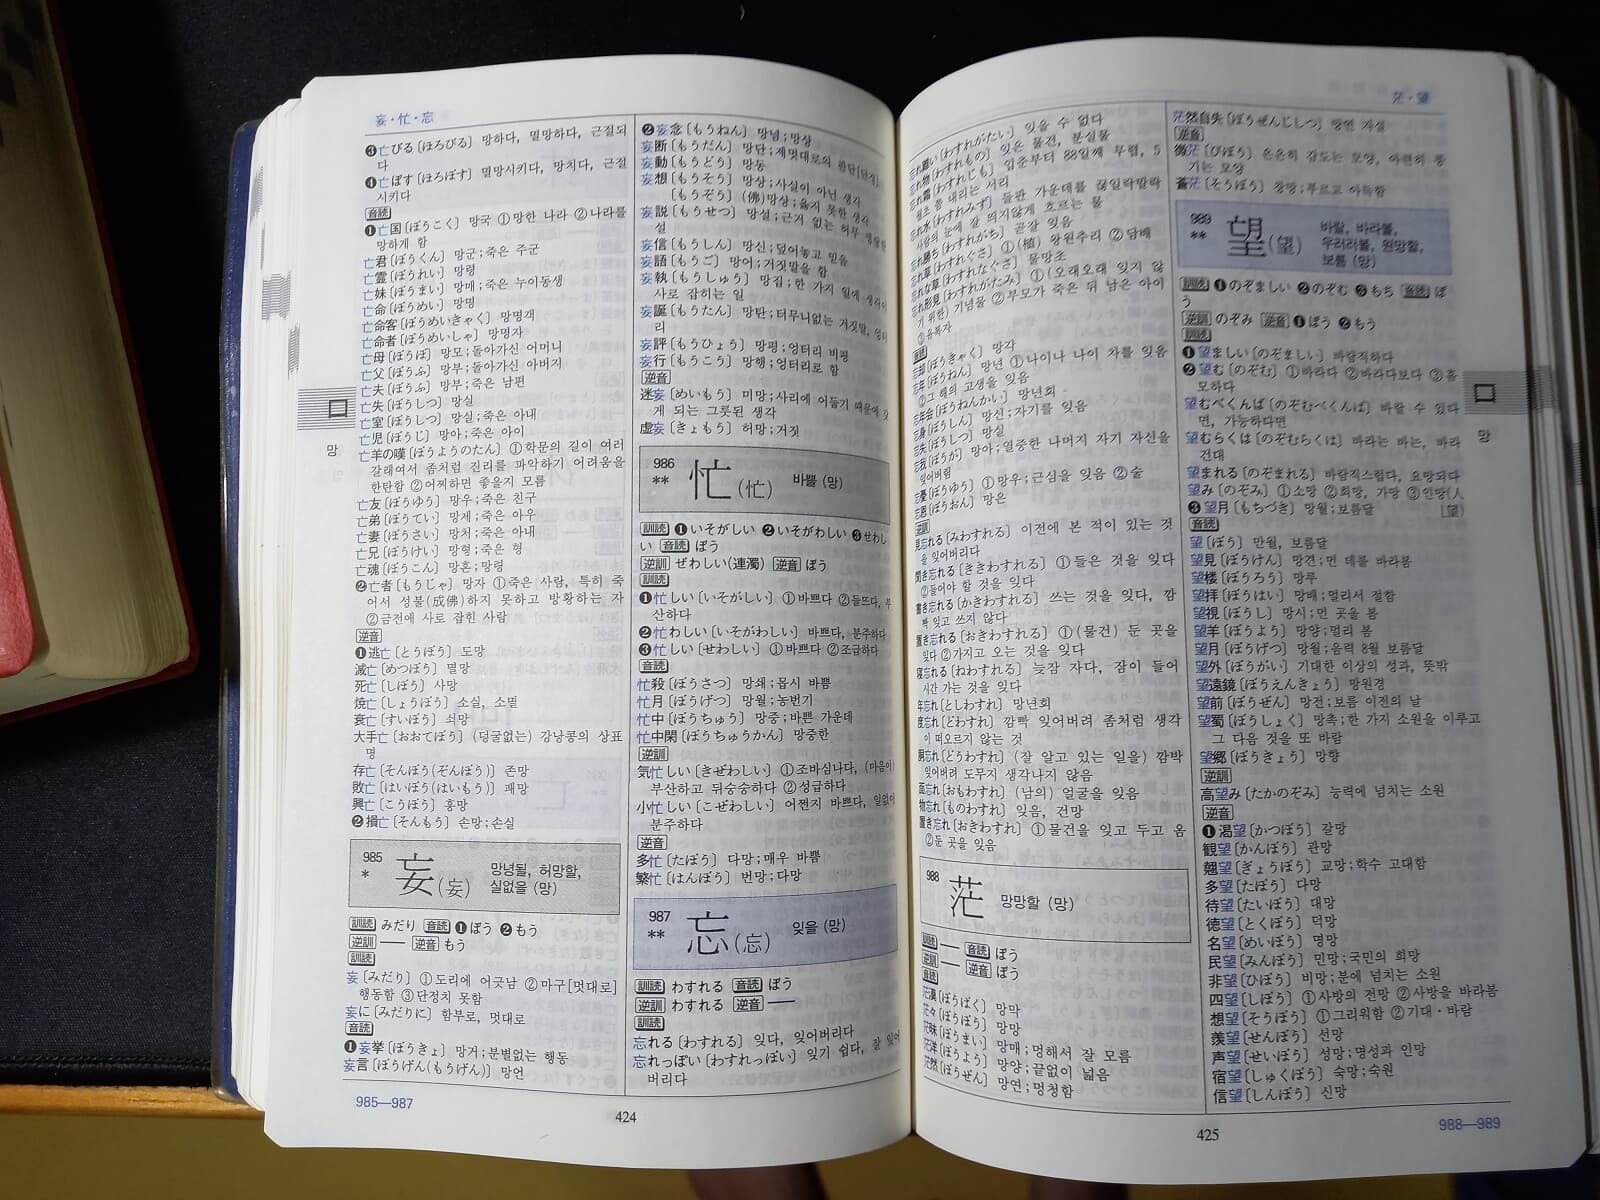 妄·忙·忘
❸亡びる〔ほろびる〕 망하다, 멸망하다, 근절되
다
❹亡ぼす〔ほろぼす〕 멸망시키다, 망치다, 근절
시키다
音読
❶亡国〔ぼうこく〕 망국 ①망한 나라 ②나라를
망하게 함
亡君〔ぼうくん〕 망군;죽은 주군
亡霊〔ぼうれい〕 망령
亡妹〔ぼうまい〕 망매;죽은 누이동생
亡命〔ぼうめい〕 망명
亡命客〔ぼうめいきゃく〕 망명객
亡命者〔ぼうめいしゃ〕 망명자
亡母〔ぼうぼ〕 망모;돌아가신 어머니
亡父〔ぼうふ〕 망부;돌아가신 아버지
亡夫〔ぼうふ〕 망부;죽은 남편
亡失〔ぼうしつ〕 망실
亡室〔ぼうしつ〕 망실;죽은 아내
亡児〔ぼうじ〕 망아;죽은 아이
亡羊の嘆〔ぼうようのたん〕 ①학문의 길이 여러
갈래여서 좀처럼 진리를 파악하기 어려움을
한탄함 ②어찌하면 좋을지 모름
亡友〔ぼうゆう〕 망우;죽은 친구
亡弟〔ぼうてい〕 망제;죽은 아우
亡妻〔ぼうさい〕 망처;죽은 아내
亡兄〔ぼうけい〕 망형;죽은 형
亡魂〔ぼうこん〕 망혼;망령
❷亡者〔もうじゃ〕 망자 ①죽은 사람, 특히 죽
어서 성불(成佛)하지 못하고 방황하는 자
②금전에 사로 잡힌 사람
逆音
❶逃亡〔とうぼう〕 도망
滅亡〔めつぼう〕 멸망
死亡〔しぼう〕 사망
焼亡〔しょうぼう〕 소실, 소멸
衰亡〔すいぼう〕 쇠망
大手亡〔おおてぼう〕 (덩굴없는) 강낭콩의 상표
명
存亡〔そんぼう(ぞんぼう)〕 존망
敗亡〔はいぼう(はいもう)〕 패망
興亡〔こうぼう〕 흥망
❷損亡〔そんもう〕 손망;손실
985
* 妄(妄) 망녕될, 허망할,
실없을 (망)
訓読 みだり 音読 ❶ぼう ❷もう
逆訓 ── 逆音 もう
訓読
妄〔みだり〕 ①도리에 어긋남 ②마구[멋대로]
행동함 ③단정치 못함
妄に〔みだりに〕 함부로, 멋대로
音読
❶妄挙〔ぼうきょ〕 망거;분별없는 행동
妄言〔ぼうげん(もうげん)〕 망언
985—987
❷妄念〔もうねん〕 망념;망상
妄断〔もうだん〕 망단;제멋대로의 판단[단정]
妄動〔もうどう〕 망동
妄想〔もうそう〕 망상;사실이 아닌 생각
〔もうぞう〕 (佛)망상;옳지 못한 생각
妄説〔もうせつ〕 망설;근거 없는 허무 맹랑한
설
妄信〔もうしん〕 망신;덮어놓고 믿음
妄語〔もうご〕 망어;거짓말을 함
妄執〔もうしゅう〕 망집;한 가지 일에 생각이
사로 잡히는 일
妄誕〔もうたん〕 망탄;터무니없는 거짓말, 엉터
리
妄評〔もうひょう〕 망평;엉터리 비평
妄行〔もうこう〕 망행;엉터리로 함
逆音
迷妄〔めいもう〕 미망;사리에 어둡기 때문에 갖
게 되는 그릇된 생각
虚妄〔きょもう〕 허망;거짓
986
** 忙(忙) 바쁠 (망)
訓読 ❶いそがしい ❷いそがわしい ❸せわし
い 音読 ぼう
逆訓 ぜわしい(連濁) 逆音 ぼう
訓読
❶忙しい〔いそがしい〕 ①바쁘다 ②들뜨다, 부
산하다
❷忙わしい〔いそがわしい〕 바쁘다, 분주하다
❸忙しい〔せわしい〕 ①바쁘다 ②조급하다
音読
忙殺〔ぼうさつ〕 망쇄;몹시 바쁨
忙月〔ぼうげつ〕 망월;농번기
忙中〔ぼうちゅう〕 망중;바쁜 가운데
忙中閑〔ぼうちゅうかん〕 망중한
逆訓
気忙しい〔きぜわしい〕 ①조바심나다, (마음이)
부산하고 뒤숭숭하다 ②성급하다
小忙しい〔こぜわしい〕 어쩐지 바쁘다, 일없이
분주하다
逆音
多忙〔たぼう〕 다망;매우 바쁨
繁忙〔はんぼう〕 번망;다망
987
** 忘(忘) 잊을 (망)
訓読 わすれる 音読 ぼう
逆訓 わすれる 逆音 ──
訓読
忘れる〔わすれる〕 잊다, 잊어버리다
忘れっぽい〔わすれっぽい〕 잊기 쉽다, 잘 잊어
버리다
424
口
망
茫·望
忘れ難い〔わすれがたい〕 잊을 수 없다
忘れ物〔わすれもの〕 잊은 물건, 분실물
忘れ霜〔わすれじも〕 입춘부터 88일께 무렵, 5
월초 쯤 내리는 서리
忘れ水〔わすれみず〕 들판 가운데를 끊일락말락
사람의 눈에 잘 띄지않게 흐르는 물
忘れ勝ち〔わすれがち〕 곧잘 잊음
忘れ草〔わすれぐさ〕 ①(植) 왕원추리 ②담배
忘れな草〔わすれなぐさ〕 물망초
忘れ形見〔わすれがたみ〕 ①(오래오래 잊지 않
기 위한) 기념물 ②부모가 죽은 뒤 남은 아이
③유복자
音読
忘却〔ぼうきゃく〕 망각
忘年〔ぼうねん〕 망년 ①나이나 나이 차를 잊음
②그 해의 고생을 잊음
忘年会〔ぼうねんかい〕 망년회
忘身〔ぼうしん〕 망신;자기를 잊음
忘失〔ぼうしつ〕 망실
忘我〔ぼうが〕 망아;열중한 나머지 자기 자신을
잊어버림
忘憂〔ぼうゆう〕 ①망우;근심을 잊음 ②술
忘恩〔ぼうおん〕 망은
逆訓
見忘れる〔みわすれる〕 이전에 본 적이 있는 것
을 잊어버리다
聞き忘れる〔ききわすれる〕 ①들은 것을 잊다
②들어야 할 것을 잊다
書き忘れる〔かきわすれる〕 쓰는 것을 잊다, 깜
빡 잊고 쓰지 않다
置き忘れる〔おきわすれる〕 ①(물건) 둔 곳을
잊다 ②가지고 오는 것을 잊다
寝忘れる〔ねわすれる〕 늦잠 자다, 잠이 들어
시간 가는 것을 잊다
年忘れ〔としわすれ〕 망년회
度忘れ〔どわすれ〕 깜빡 잊어버려 좀처럼 생각
이 떠오르지 않는 것
胴忘れ〔どうわすれ〕 (잘 알고 있는 일을) 깜박
잊어버려 도무지 생각나지 않음
面忘れ〔おもわすれ〕 (남의) 얼굴을 잊음
物忘れ〔ものわすれ〕 잊음, 건망
置き忘れ〔おきわすれ〕 ①물건을 잊고 두고 옴
②둔 곳을 잊음
988
茫 망망할 (망)
訓読 ── 音読 ぼう
逆訓 ── 逆音 ぼう
音読
茫漠〔ぼうばく〕 망막
茫々〔ぼうぼう〕 망망
茫昧〔ぼうまい〕 망매;멍해서 잘 모름
茫洋〔ぼうよう〕 망양;끝없이 넓음
茫然〔ぼうぜん〕 망연;멍청함
425
茫然自失〔ぼうぜんじしつ〕 망연 자실
逆音
微茫〔びぼう〕 은은히 감도는 모양, 아련히 풍
기는 모양
蒼茫〔そうぼう〕 창망;푸르고 아득함
989
** 望(望) 바랄, 바라볼,
우러러볼, 원망할,
보름 (망)
訓読 ❶のぞましい ❷のぞむ ❸もち 音読 ぼ
う
逆訓 のぞみ 逆音 ❶ぼう ❷もう
訓読
❶望ましい〔のぞましい〕 바람직하다
❷望む〔のぞむ〕 ①바라다 ②바라다보다 ③흠
모하다
望むべくんば〔のぞむべくんば〕 바랄 수 있다
면, 가능하다면
望むらくは〔のぞむらくは〕 바라는 바는, 바라
건대
望まれる〔のぞまれる〕 바람직스럽다, 요망되다
望み〔のぞみ〕 ①소망 ②희망, 가망 ③인망(人
望)
❸望月〔もちづき〕 망월;보름달
音読
望〔ぼう〕 만월, 보름달
望見〔ぼうけん〕 망견;먼 데를 바라봄
望楼〔ぼうろう〕 망루
望拝〔ぼうはい〕 망배;멀리서 절함
望視〔ぼうし〕 망시;먼 곳을 봄
望羊〔ぼうよう〕 망양;멀리 봄
望月〔ぼうげつ〕 망월;음력 8월 보름달
望外〔ぼうがい〕 기대한 이상의 성과, 뜻밖
望遠鏡〔ぼうえんきょう〕 망원경
望前〔ぼうぜん〕 망전;보름 이전의 날
望蜀〔ぼうしょく〕 망촉;한 가지 소원을 이루고
그 다음 것을 또 바람
望郷〔ぼうきょう〕 망향
逆訓
高望み〔たかのぞみ〕 능력에 넘치는 소원
逆音
❶渇望〔かつぼう〕 갈망
観望〔かんぼう〕 관망
翹望〔ぎょうぼう〕 교망;학수 고대함
多望〔たぼう〕 다망
待望〔たいぼう〕 대망
徳望〔とくぼう〕 덕망
名望〔めいぼう〕 명망
民望〔みんぼう〕 민망;국민의 희망
非望〔ひぼう〕 비망;분에 넘치는 소원
四望〔しぼう〕 ①사방의 전망 ②사방을 바라봄
想望〔そうぼう〕 ①그리워함 ②기대·바람
羨望〔せんぼう〕 선망
声望〔せいぼう〕 성망;명성과 인망
宿望〔しゅくぼう〕 숙망;숙원
信望〔しんぼう〕 신망
988—989
口
망